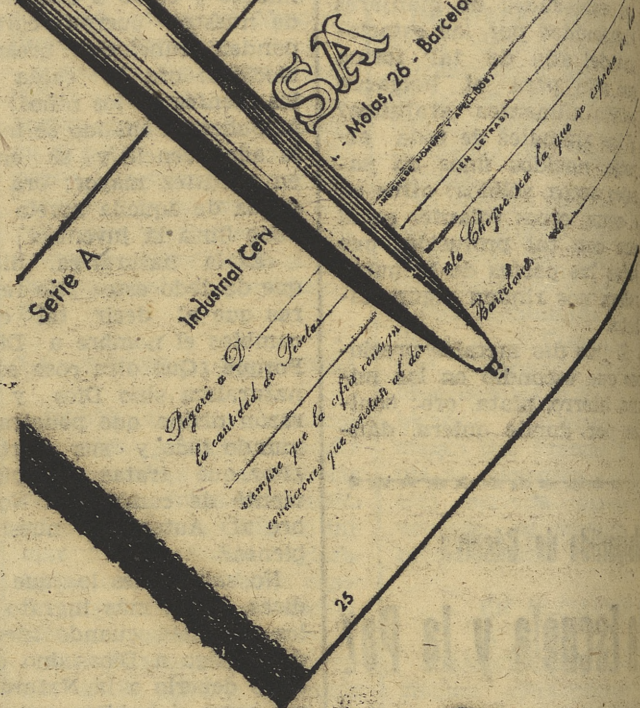 SA
Molas, 26 - Barcelo
Serie A
Industrial Cerv
(DESIGNESE NOMBRE Y APELLIDOS)
Pagará a D.
(EN LETRAS)
la cantidad de Pesetas
siempre que la cifra consign
este Cheque sea la que se expresa en l
condiciones que constan al dor
Barcelona, de
25